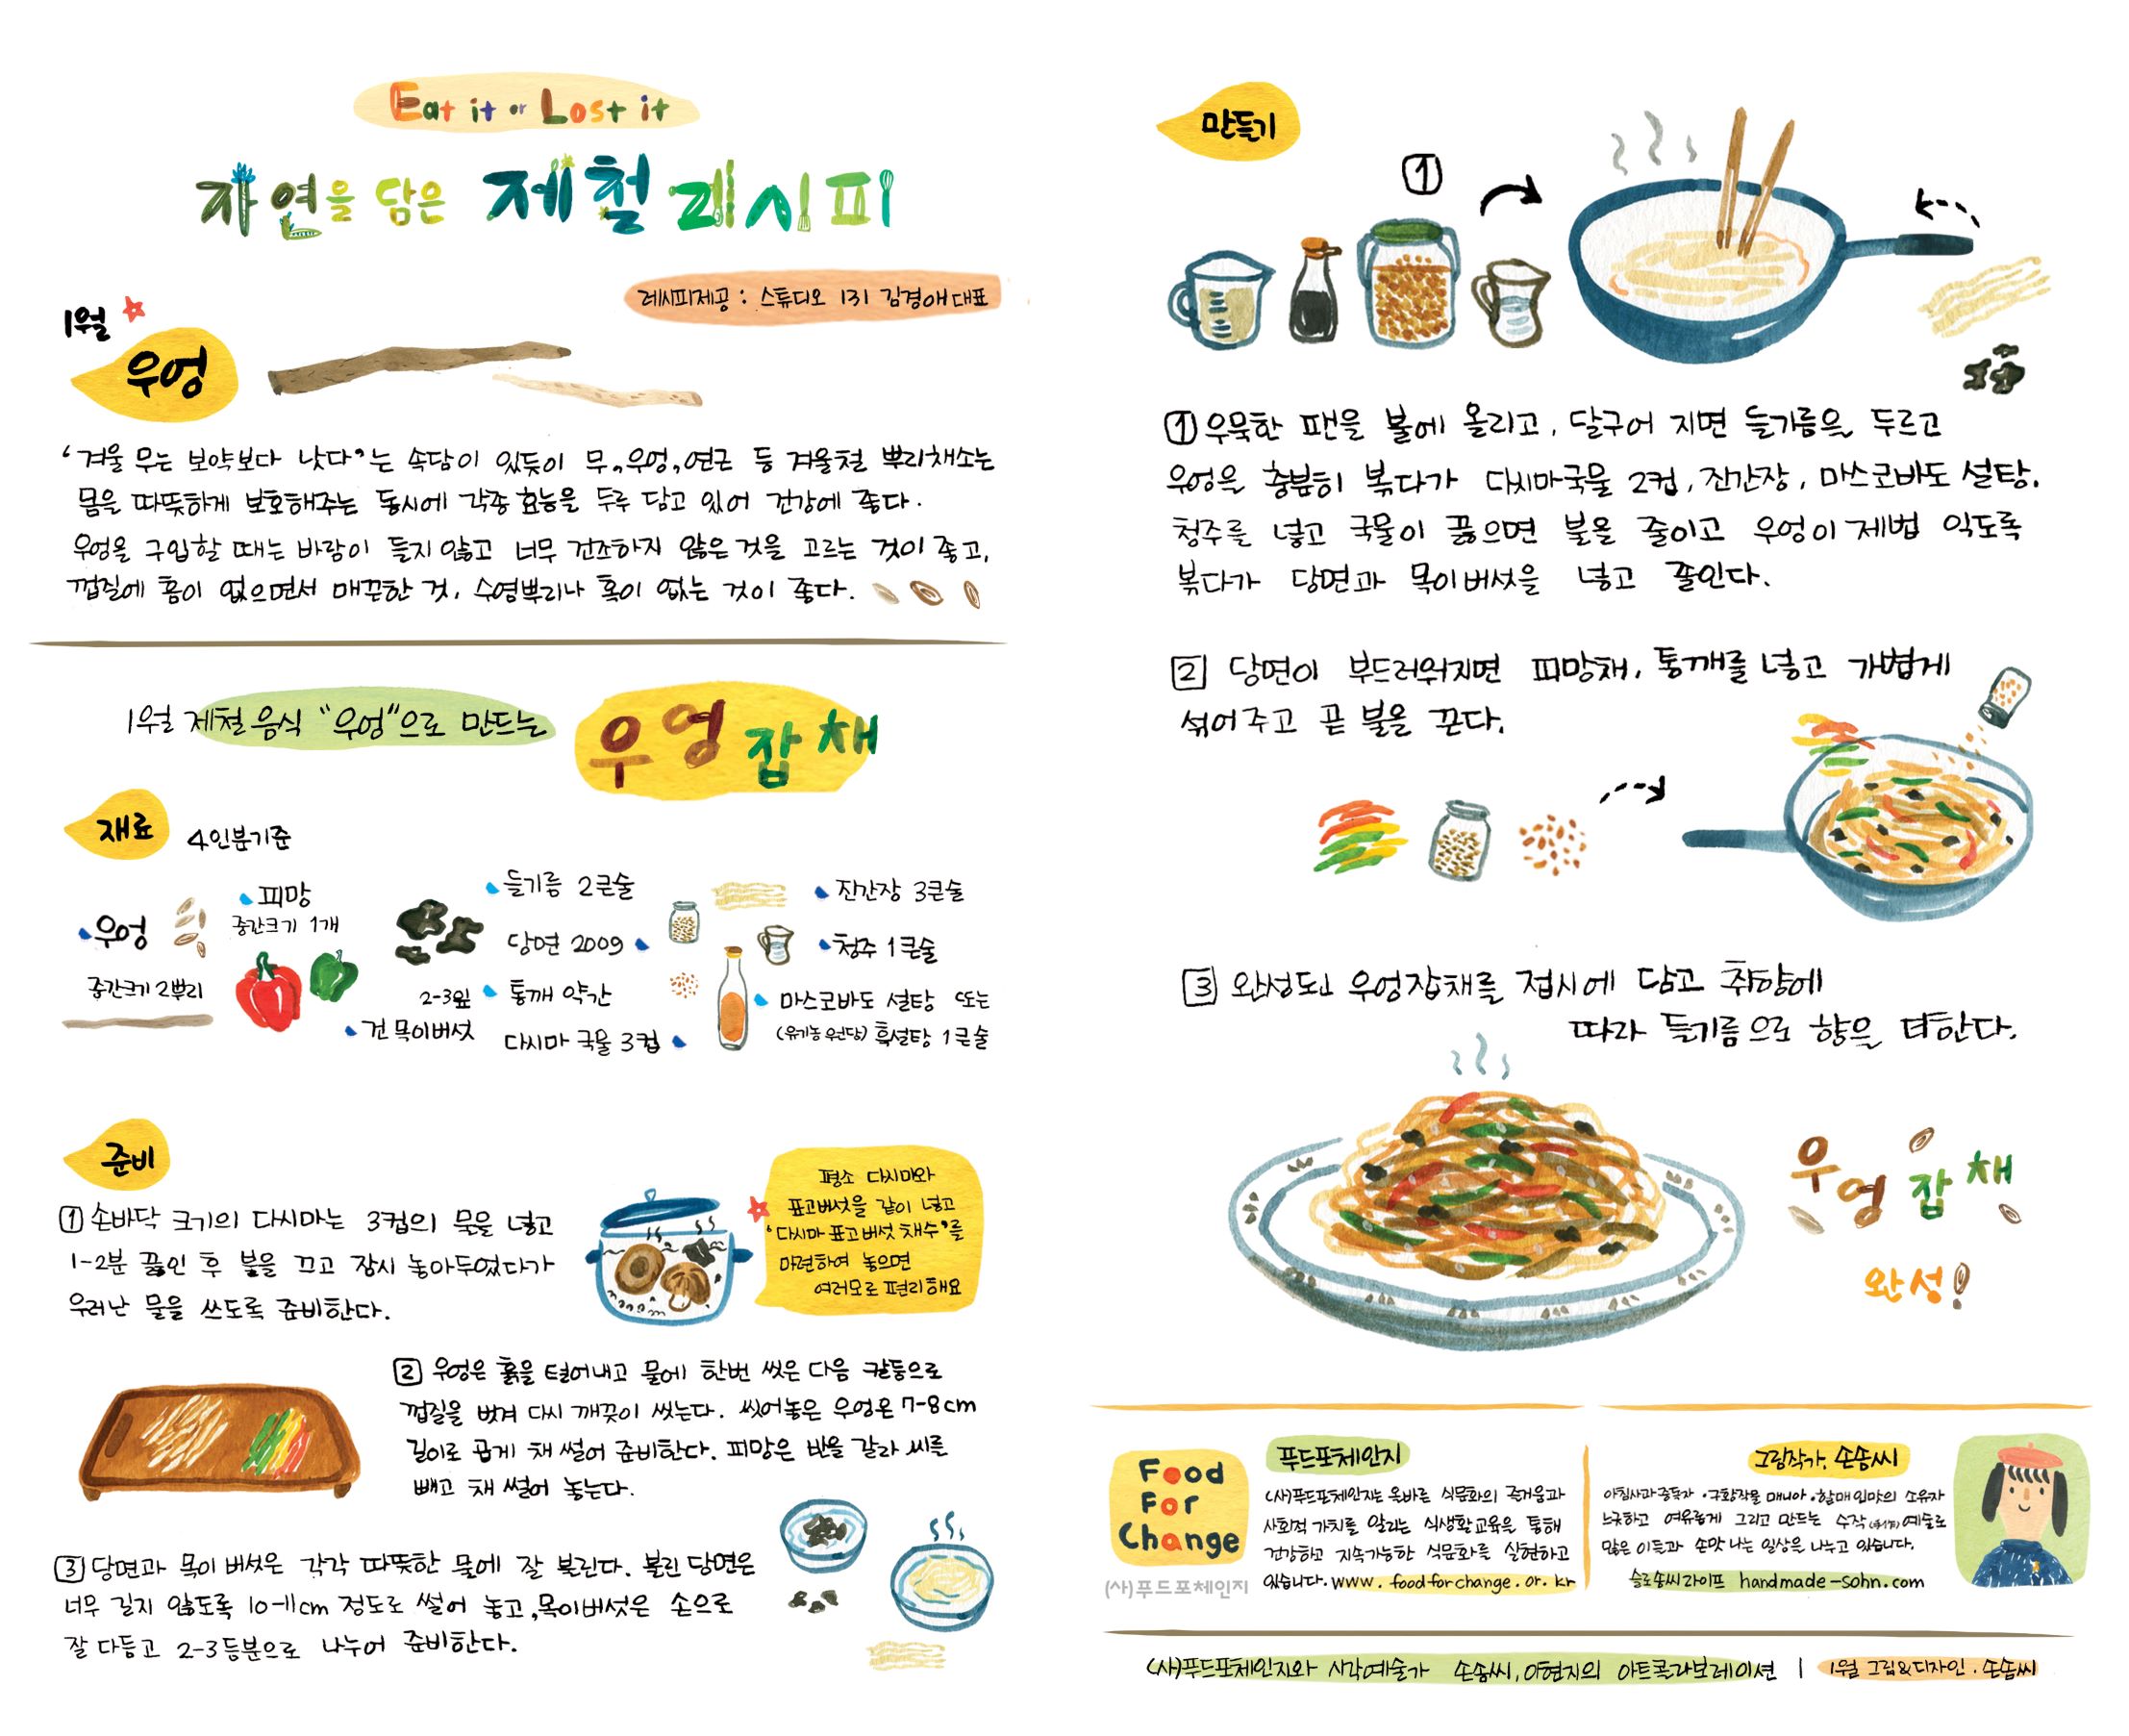 Eat it or Lost it
자연을 담은 제철 레시피
레시피제공 : 스튜디오 131 김경애대표
1월
우엉
'겨울 무는 보약보다 낫다'는 속담이 있듯이 무, 우엉, 연근 등 겨울철 뿌리채소는
몸을 따뜻하게 보호해주는 동시에 각종 효능을 두루 담고 있어 건강에 좋다.
우엉을 구입할 때는 바람이 들지 않고 너무 건조하지 않은 것을 고르는 것이 좋고,
껍질에 흠이 없으면서 매끈한 것, 수염뿌리나 혹이 없는 것이 좋다.
1월 제철음식 "우엉"으로 만드는
우엉잡채
재료
4인분기준
우엉
중간크기 2뿌리
피망
중간크기 1개
2-3잎
건 목이버섯
들기름 2큰술
당면 200g
통깨 약간
다시마 국물 3컵
진간장 3큰술
청주 1큰술
마스코바도 설탕 또는
(유기농 원당) 흑설탕 1큰술
준비
1 손바닥 크기의 다시마는 3컵의 물을 넣고
1-2분 끓인 후 불을 끄고 잠시 놓아두었다가
우러난 물을 쓰도록 준비한다.
평소 다시마와
표고버섯을 같이 넣고
'다시마 표고버섯 채수'를
마련하여 놓으면
여러모로 편리해요
2 우엉은 흙을 털어내고 물에 한번 씻은 다음 칼등으로
껍질을 벗겨 다시 깨끗이 씻는다. 씻어놓은 우엉은 7-8cm
길이로 곱게 채 썰어 준비한다. 피망은 반을 갈라 씨를
빼고 채 썰어 놓는다.
3 당면과 목이버섯은 각각 따뜻한 물에 잘 불린다. 불린 당면은
너무 길지 않도록 10-11cm 정도로 썰어 놓고, 목이버섯은 손으로
잘 다듬고 2-3등분으로 나누어 준비한다.
만들기
1
1 우묵한 팬을 불에 올리고, 달구어 지면 들기름을 두르고
우엉을 충분히 볶다가 다시마국물 2컵, 진간장, 마스코바도 설탕,
청주를 넣고 국물이 끓으면 불을 줄이고 우엉이 제법 익도록
볶다가 당면과 목이버섯을 넣고 졸인다.
2 당면이 부드러워지면 피망채, 통깨를 넣고 가볍게
섞어주고 곧 불을 끈다.
3 완성된 우엉잡채를 접시에 담고 취향에
따라 들기름으로 향을 더한다.
우엉잡채
완성!
Food
For
Change
(사)푸드포체인지
푸드포체인지
(사)푸드포체인지는 올바른 식문화의 즐거움과
사회적 가치를 알리는 식생활교육을 통해
건강하고 지속가능한 식문화를 실현하고
있습니다. www.foodforchange.or.kr
그림작가, 손솜씨
아침사과중독자 · 구황작물 매니아 · 할매입맛의 소유자
느긋하고 여유롭게 그리고 만드는 수작 예술로
많은 이들과 손맛 나는 일상을 나누고 있습니다.
슬로솜씨라이프 handmade-sohn.com
(사)푸드포체인지와 시각예술가 손솜씨, 이현지의 아트콜라보레이션 | 1월 그림&디자인. 손솜씨